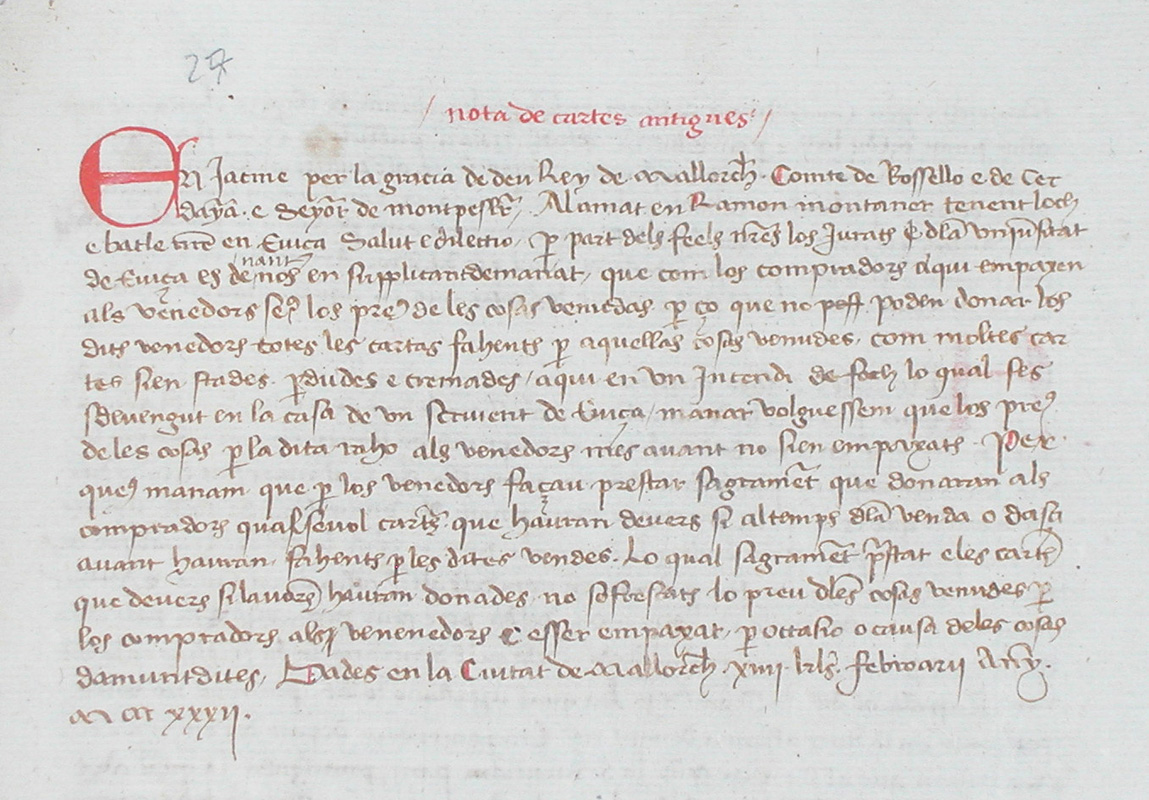 27
/ nota de cartes antigues /
En Jacme per la gracia de deu Rey de Mallorch. Comte de Rossello e de Cer
daya. e Senyor de montpesler, Al amat en Ramon montaner tenent loch
e batle nre en Eviça Salut e dileccio, p part dels feels nres los Jurats e dla vniusitat
de Eviça es denant nos en supplicant demanat, que com los compradors aqui empaxen
als venedors los preu de les cosas venudas. p ço que no poden donar los
dits venedors totes les cartas fahents p aquellas cosas venudes, com moltes car
tes sien stades. pdudes e cremades, aqui en vn Incendi de foch lo qual ses
sdevengut en la casa de vn scrivent de Eviça, manar volguessem que los preu
de les cosas p la dita raho als venedors mes avant no sien empaxats. Per
que manam que p los venedors façau prestar sagramet que donaran als
compradors qualsevol carts que hauran devers si al temps dla venda o dasi
avant hauran, fahents p les dites vendes. Lo qual sagramet pstat e les carts
que devers si lavors hauran donades. no lo preu dles cosas venudes p
los compradors als venenedors esser empaxat, p occasio o causa de les cosas
damunt dites, Dades en la Ciutat de Mallorch. xiiii. kls. februarii Any.
M CCC xxxii.